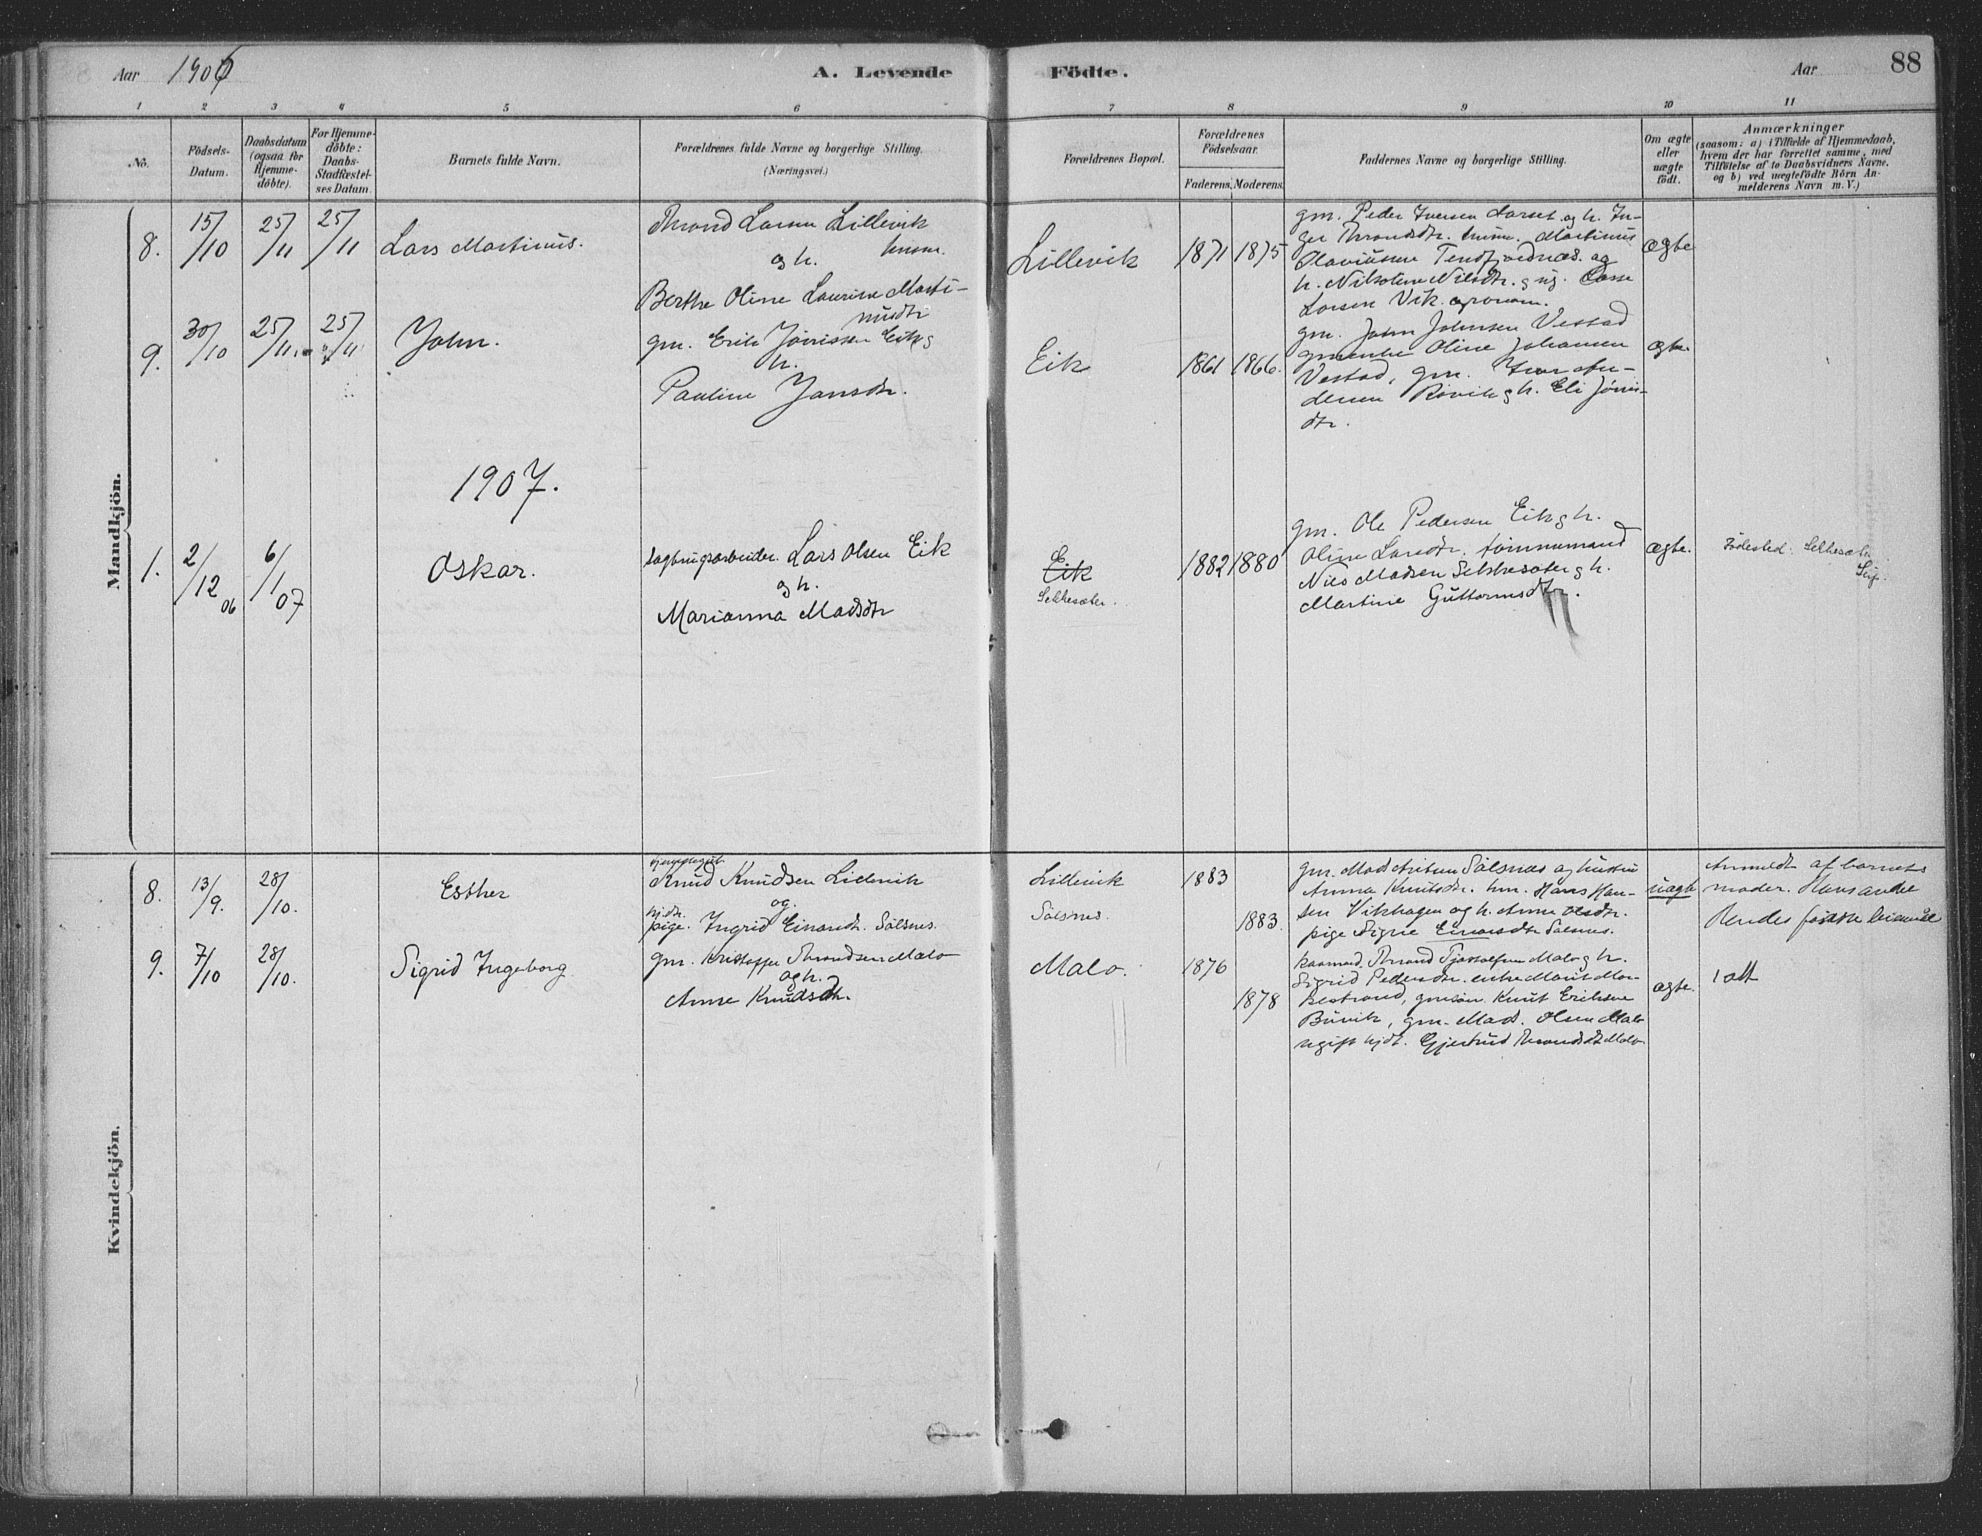 Aar 1906 A. Levende Födte. Aar 88
1 2 3 4 5 6 7 8 9 10 11
No.
Födsels-
Datum.
Daabsdatum
(ogsaa for
Hjemme-
döbte).
For Hjemme-
döbte:
Daabs-
Stadfæstel-
ses Datum.
Barnets fulde Navn.
Forældrenes fulde Navne og borgerlige Stilling.
(Næringsvei.)
Forældrenes Bopæl.
Forældrenes
Födselsaar.
Faderens. Moderens.
Faddernes Navne og borgerlige Stilling.
Om ægte
eller
uægte
födt.
Anmærkninger
(saasom: a) i Tilfælde af Hjemmedaab,
hvem der har forrettet samme, med
Tilföielse af to Daabsvidners Navne.
og b) ved uægtefödte Börn An-
melderens Navn m. V.)
Mandkjön.
8. 15/10 25/11 25/11 Lars Martinus.
Thrond Larsen Lillevik
og h.
Berthe Oline Laurine Marti-
nusdtr
Lillevik 1871 1875
gm. Peder Iversen og h. In-
ger Throndsdtr. Martinus
Olaviusen og
h. Nikoline Nilsdtr. g ug. Lasse
Larsen Vik
ægte
9. 30/10 25/11 25/11 John.
gm. Erik Jörrissen Eik g
h.
Pauline Jansdtr.
Eik 1861 1866.
gm. John Johnsen Vestad
Oline Johansen
Vestad, gm. Iver An-
dersen Rövik g h. Eli Jörris-
dtr.
ægte.
1907.
1. 2/12 06 6/1 07 Oskar.
sagbrugsarbeider. Lars Olsen Eik
og h.
Marianna Madsdtr
Eik
Sekkesæter.
1882 1880
gm. Ole Pedersen Eik g h.
Oline Larsdtr. tömmermand
Nils Madsen Sekkesæter g h.
Martine Guttormsdtr.
ægte.
Födested. Sekkesæter
Kvindekjön.
8. 13/9. 28/10. Esther
Knud Knudsen Lillevik
og
pige. Ingrid Einarsdtr. Sölsnes.
Lillevik 1883
Sölsnes. 1883.
gm. Mads Sölsnes og hustru
Anna Knutsdtr. hm. Hans Han-
sen Vikhagen og h. Anne Olsdtr.
pige Signe Einarsdtr Sölsnes.
uægte
Anmeldt af barnets
moder. Hans andet
Hendes förste leiermål
9. 7/10 28/10. Sigrid Ingeborg
gm. Kristoffer Throndsen Malo
og h.
Anne Knudsdtr.
Malo. 1876
1878
kaarmd. Thrond Tjöstolfsen Malo g h.
Sigrid Pedersdtr. enke Marit
gmsön. Knut Eriksen
Buvik, gm. Mads Olsen Malo
ugift Gjertrud Throndsdtr Malo
ægte.
1 att